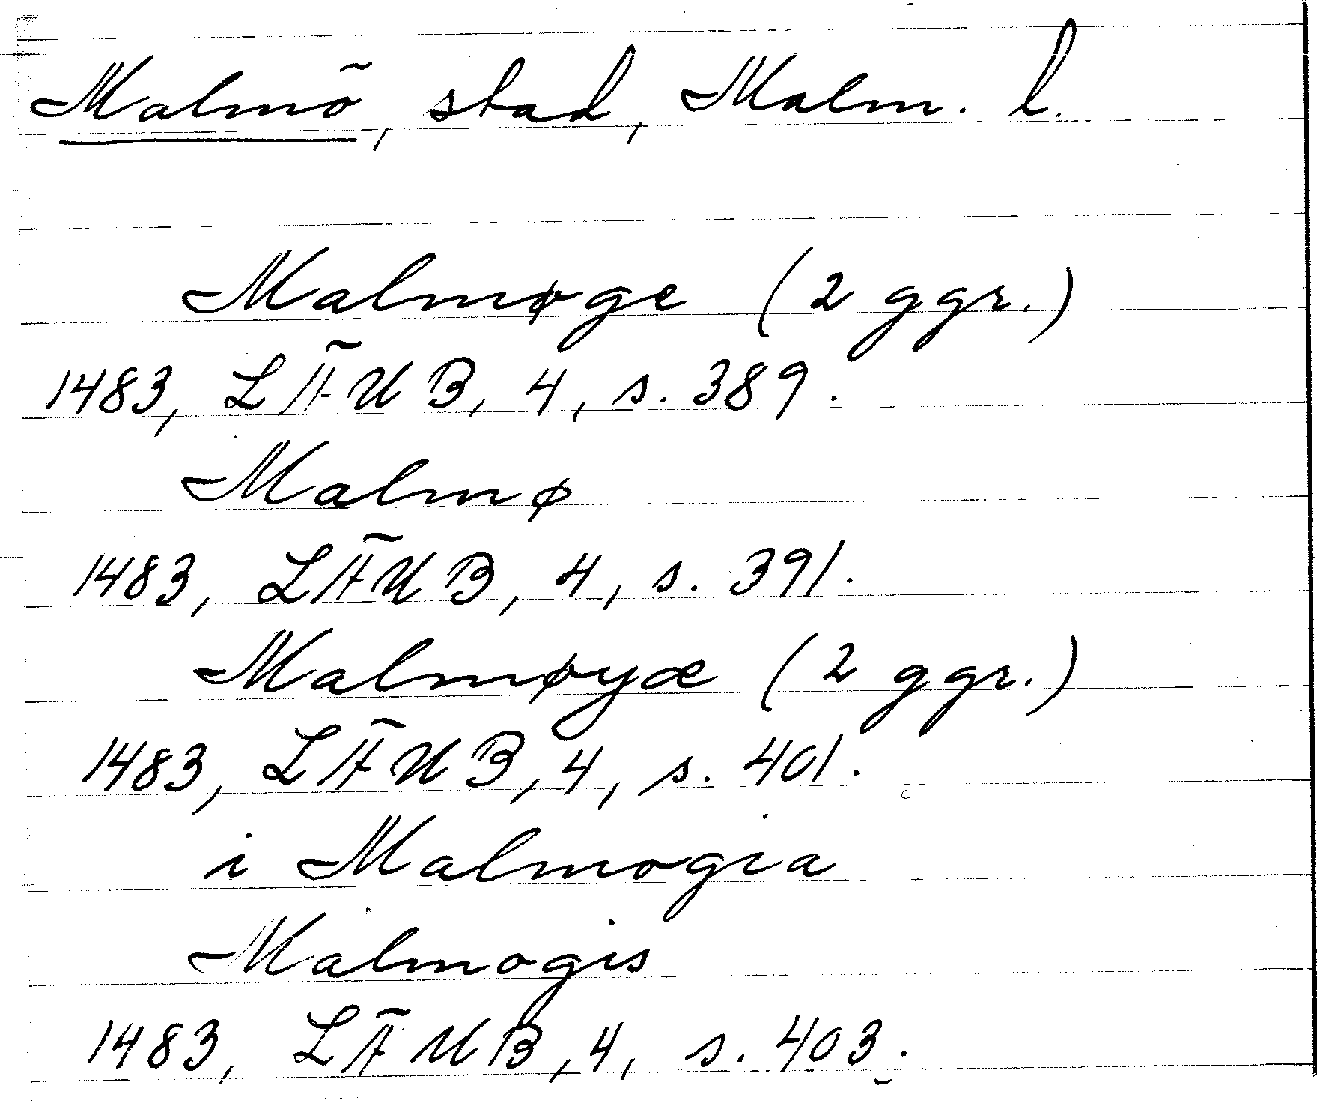 Malmö, stad, Malm. l.
Malmøge (2 ggr.)
1483, LÄUB, 4, s. 389.
Malmø
1483, LÄUB, 4, s. 391.
Malmøyæ (2 ggr.)
1483, LÄUB, 4, s. 401.
i Malmogia
Malmogis
1483, LÄUB, 4, s. 403.